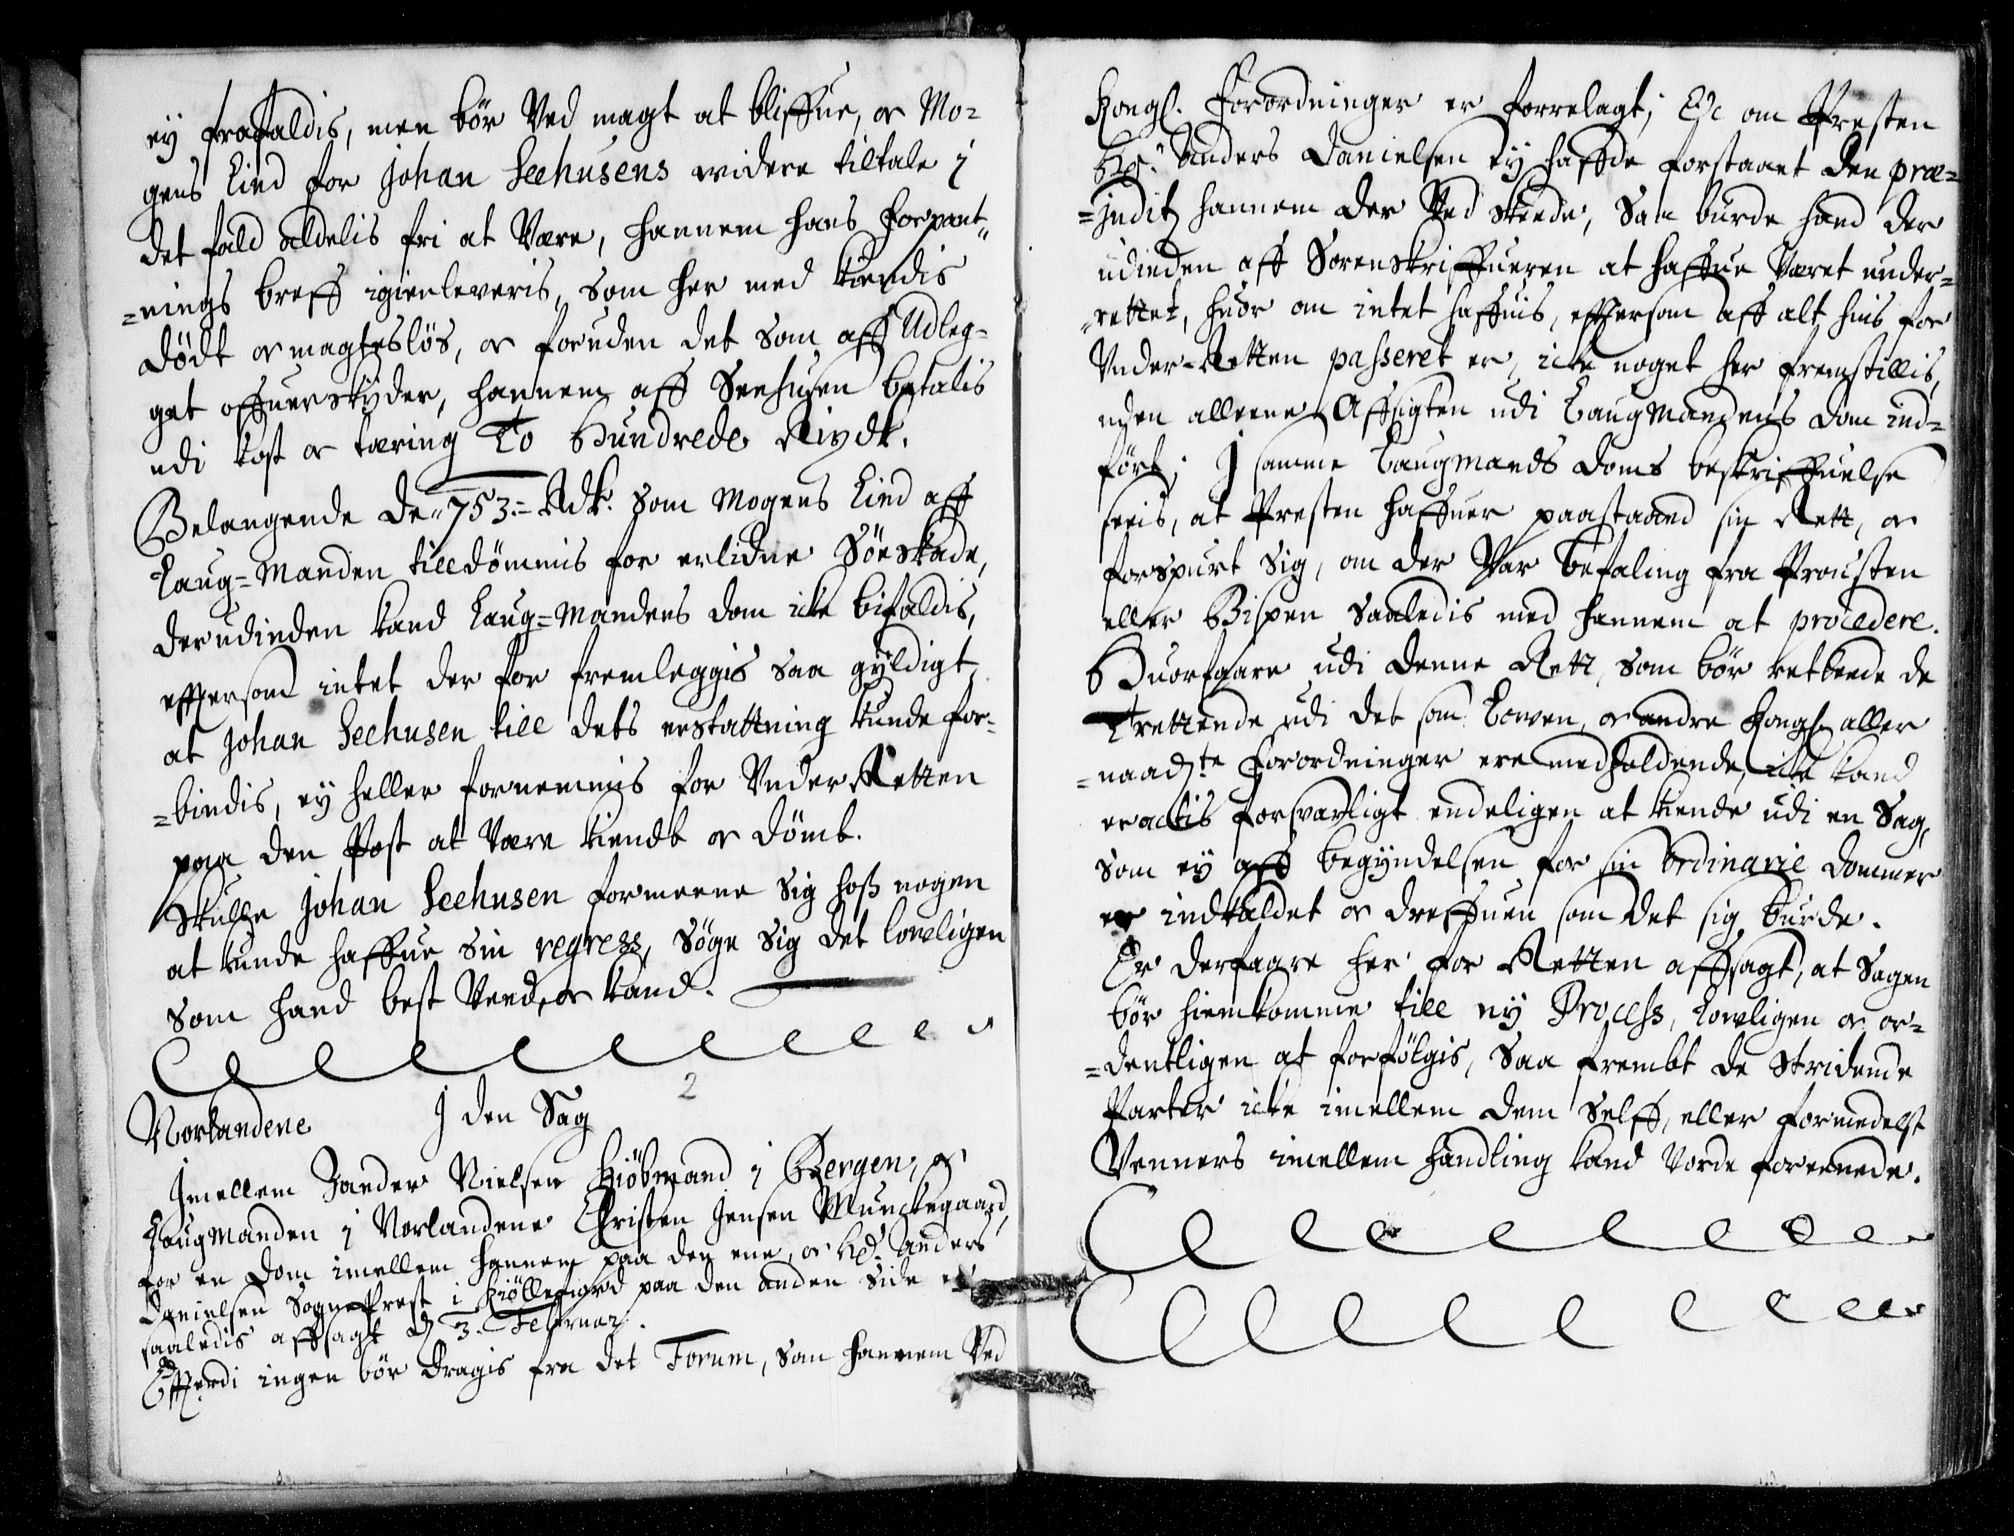 ey frafaldis, men bör Ved magt at bliffue, oc Mo-
gens Lied for Johan Seehusens widere tiltale i
det fald aldelis fri at Være, hannem hans forpant-
=nings breff igienleveris, som her med kiendis
dödt oc magteslös, oc foruden det som aff Udleg-
get offuerskyder, hannem aff Seehusen betalis
udi kost oc tæring To Hundrede Rixdr.
Belangende de 753 Rdr. som Mogens Lied aff
Laug=Manden tilldömmis for erlidne Söeskade,
derudinden kand Laug=Mandens dom icke bifaldis,
effersom intet der for fremleggis saa gyldigt,
at Johan Seehusen till dets erstattning kunde for-
=bindis, ey heller fornemmis for Under Retten
paa den Post at være kiendt oc dömt.
Skulle Johan Seehusen formeene sig hoss nogen
at kunde haffue sin regress, söge sig det lowligen
som hand best Veed oc kand.
2
Norlandene I den Sag
Imellem Zander Nielsen Kiöbmand i Bergen, oc
LaugManden i Norlandene Christen Jensen Munckegaard,
for en Dom imellem hannem paa den ene, oc Hr. Anders
Danielsen SognePrest i Kiöllefiord paa den anden side er
saaledis affsagt d. 3. Februar.
Efterdi ingen bör dragis fra det Forum, som hannem Ved
Kongl. Forordninger er forrelagt; Oc om Presten
Hr. Anders Danielsen ey haffde forstaaet den præ-
=juditz hannem der Ved skeede, Saa burde hand der
udinden aff Sorenskriffueren at haffue Været under-
=rettet, huor om intet haffuis, effersom aff alt huis for
Under-Retten passeret er, icke noget her fremstillis,
uden alleene Affsigten udi LaugMandens dom ind-
fört; I samme Laugmands doms beskriffuelse
seeis, at Presten haffuer paastaaed sin Rett, oc
forspurt sig, om der Var befaling fra Prousten
eller Bispen Saaledis med hannem at procedere.
Huorfaare udi denne Rett, som bör retleede de
Trettende udi det som Lowen, oc andre Kongl. aller
=naadste Forordninger ere medholdende, icke kand
eractis forsvarligt endeligen at kiende udi en Sag,
som ey aff begyndelsen for sin Ordinarie Dommer
er indkaldet oc dreffuen som det sig burde.
Er derfaare her for Retten affsagt, at Sagen
bör hiemkomme till ny Process, lowligen oc or-
=dentligen at forfölgis, Saa frembt de Stridende
Parter icke imellem dem selff, eller formedelst
Venners imellem handling kand Vorde foreenede.